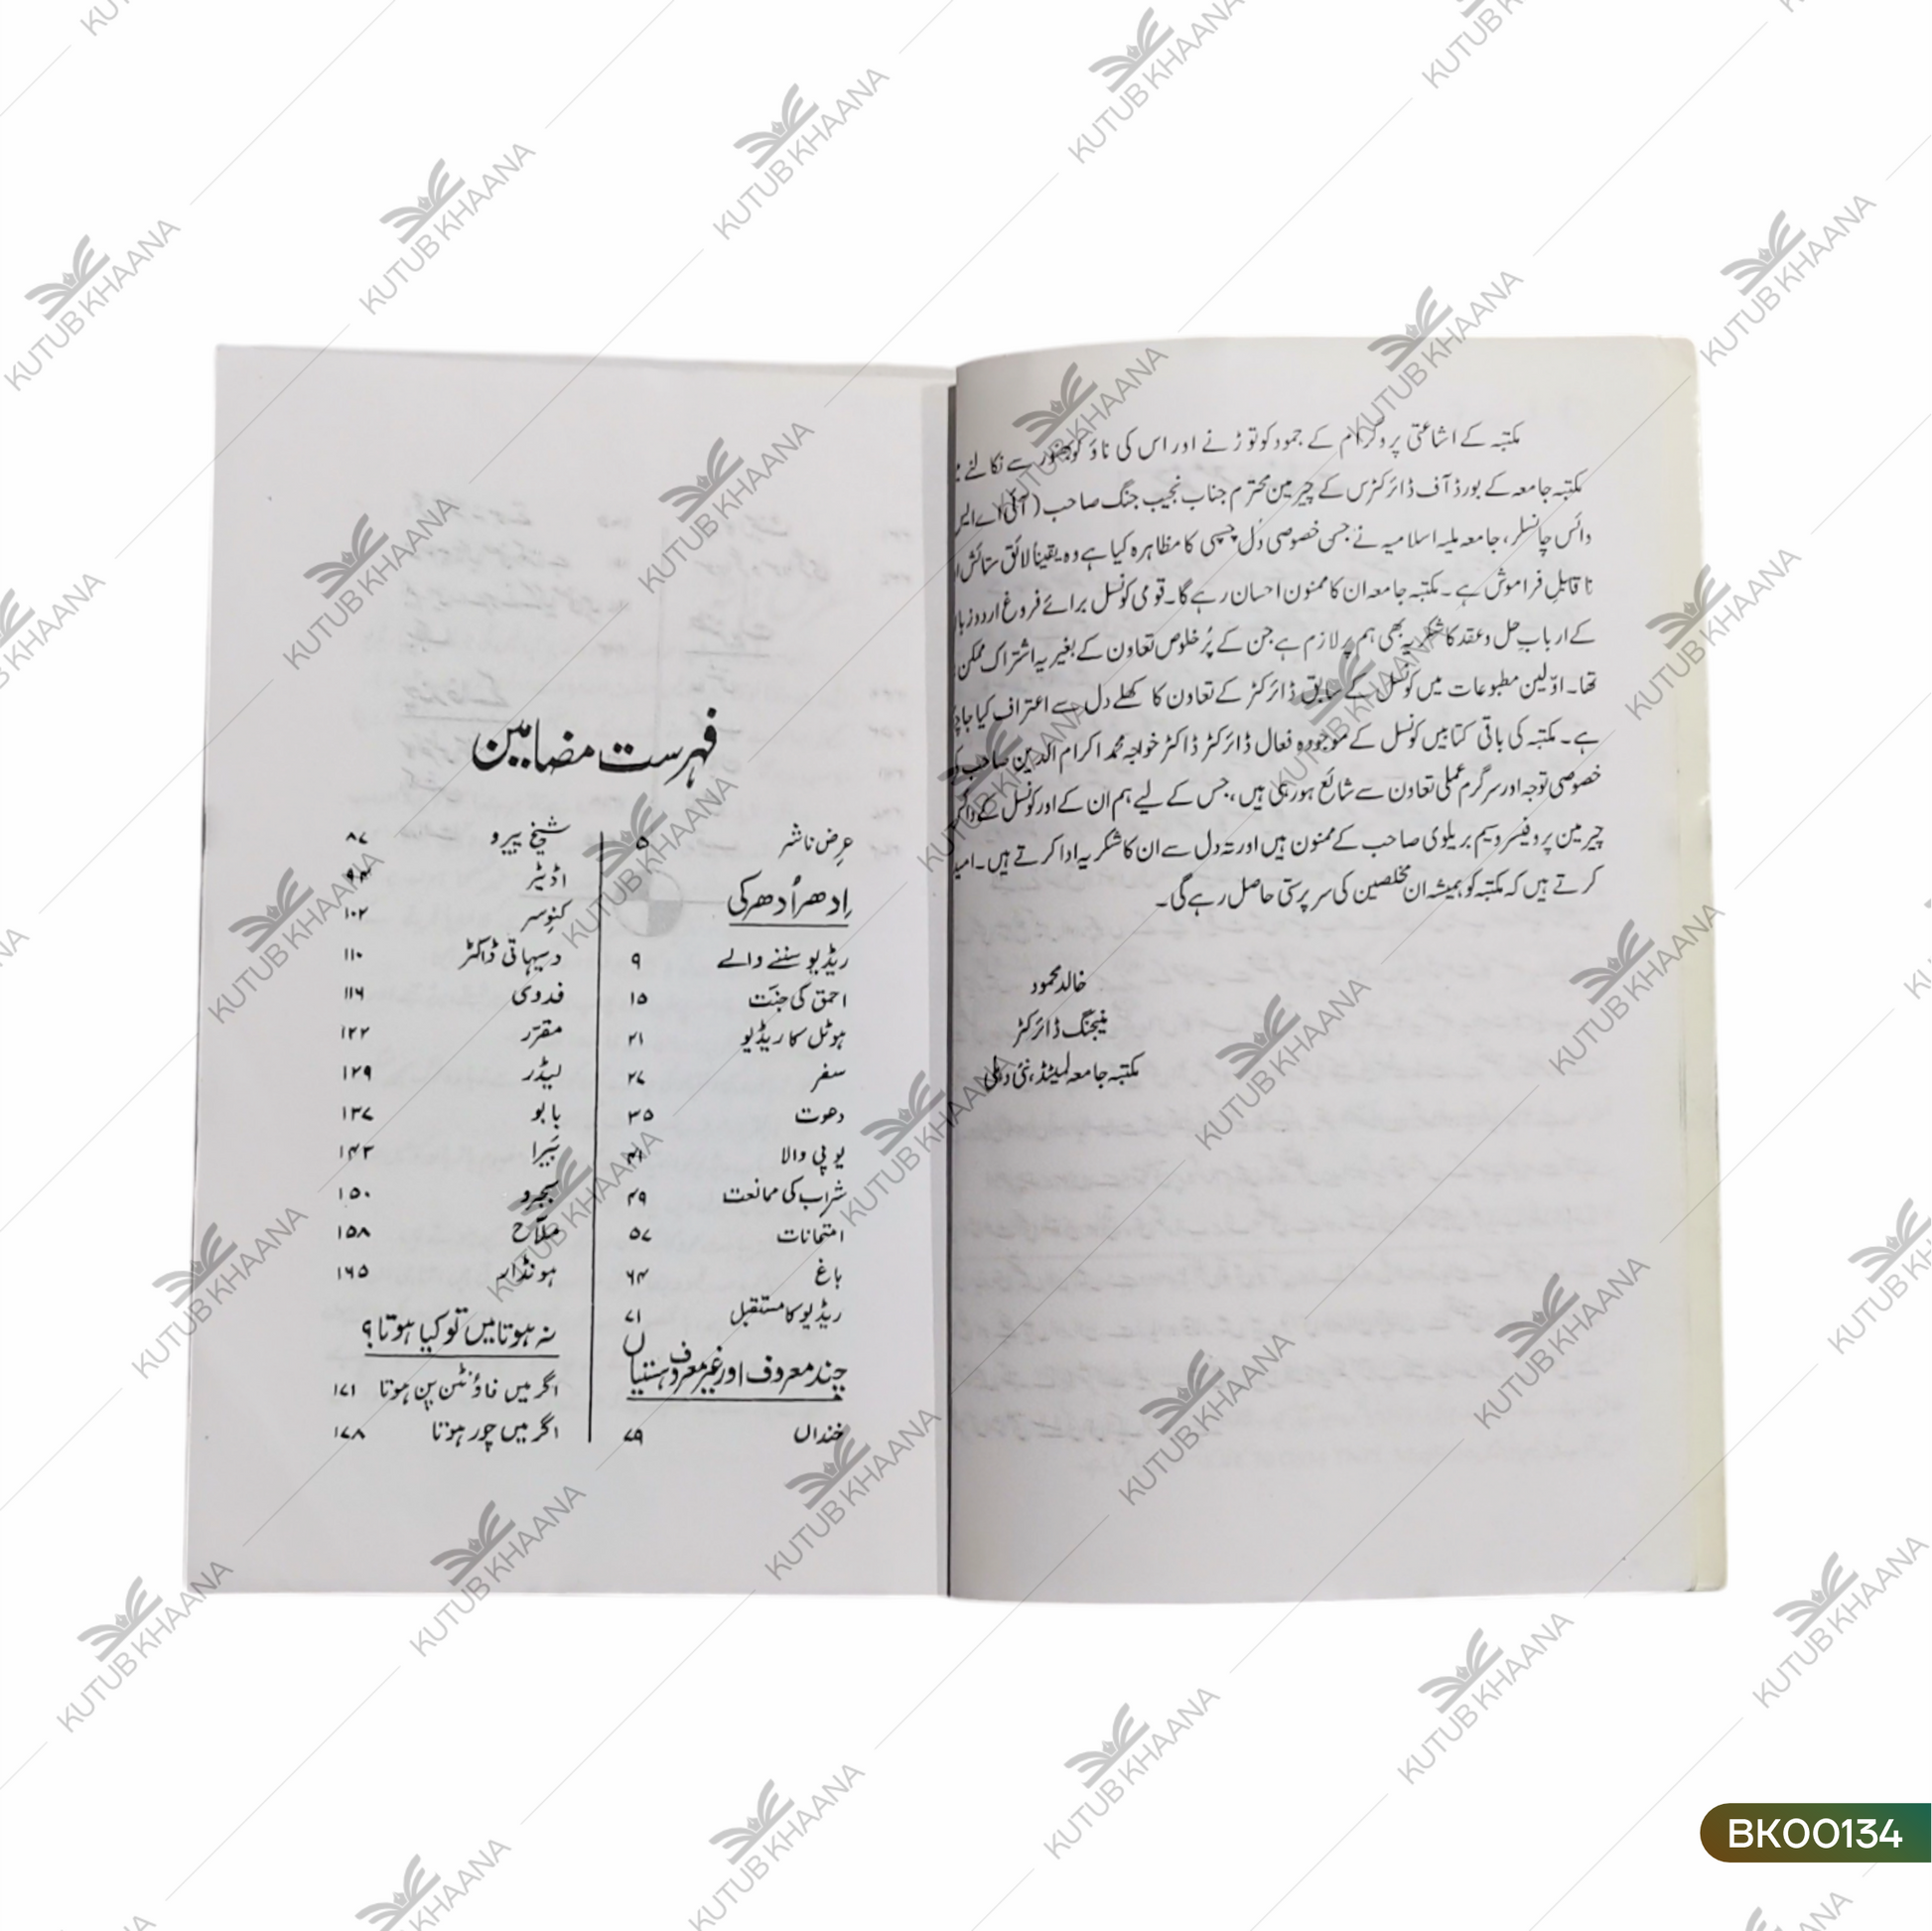 مکتبہ کے اشاعتی پروگرام کے جمود کو توڑنے اور اس کی ناؤ کو بھنور سے نکالنے
مکتبہ جامعہ کے بورڈ آف ڈائرکٹرس کے چیرمین محترم جناب نجیب جنگ صاحب (آئی اے ایس
وائس چانسلر، جامعہ ملیہ اسلامیہ نے جس خصوصی دل چسپی کا مظاہرہ کیا ہے وہ یقیناً لائق ستائش
ناقابلِ فراموش ہے۔ مکتبہ جامعہ ان کا ممنون احسان رہے گا۔ قومی کونسل برائے فروغ اردو
کے اربابِ حل و عقد کا شکریہ بھی ہم پر لازم ہے جن کے پُر خلوص تعاون کے بغیر یہ اشتراک ممکن
تھا۔ اوّلین مطبوعات میں کونسل کے سابق ڈائرکٹر کے تعاون کا کھلے دل سے اعتراف کیا
ہے۔ مکتبہ کی باقی کتابیں کونسل کے موجودہ فعال ڈائرکٹر ڈاکٹر خواجہ محمد اکرام الدین صاحب کی
خصوصی توجہ اور سرگرم عملی تعاون سے شائع ہو رہی ہیں، جس کے لیے ہم ان کے اور کونسل کے
چیرمین پروفیسر وسیم بریلوی صاحب کے ممنون ہیں اور تہ دل سے ان کا شکریہ ادا کرتے ہیں۔ امید
کرتے ہیں کہ مکتبہ کو ہمیشہ ان مخلصین کی سرپرستی حاصل رہے گی۔
خالد محمود
منیجنگ ڈائرکٹر
مکتبہ جامعہ لمیٹڈ، نئی دہلی
فہرست مضامین
عرض ناشر ۵
اِدھر اُدھر کی
ریڈیو سننے والے ۹
احمق کی جنّت ۱۵
ہوٹل کا ریڈیو ۲۱
سفر ۲۷
دعوت ۳۵
یو پی والا ۴۱
شراب کی ممانعت ۴۹
امتحانات ۵۷
باغ ۶۴
ریڈیو کا مستقبل ۷۱
چند معروف اور غیر معروف ہستیاں
خنداں ۷۹
شیخ پیرو ۸۷
اڈیٹر
کنوسر ۱۰۲
دیہاتی ڈاکٹر ۱۱۰
فدوی ۱۱۶
مقرّر ۱۲۲
لیڈر ۱۲۹
بابو ۱۳۷
بَیرا ۱۴۳
۱۵۰
ملّاح ۱۵۸
ہونڈار ۱۶۵
نہ ہوتا میں تو کیا ہوتا؟
اگر میں فاؤنٹن پن ہوتا ۱۷۱
اگر میں چور ہوتا ۱۷۸
KUTUB KHAANA
BK00134